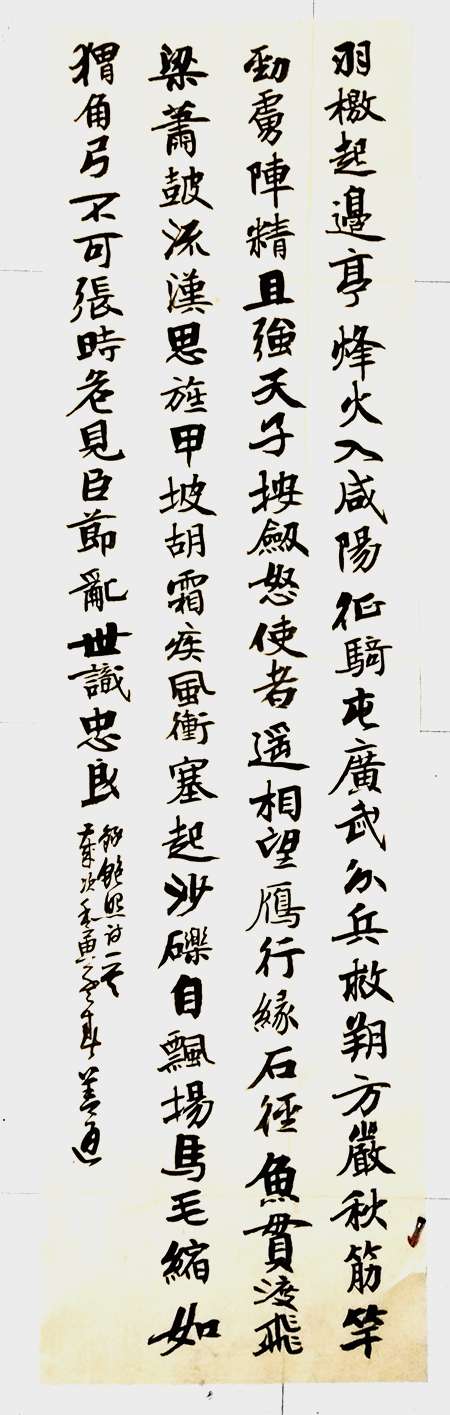 羽檄起邊亭烽火入咸陽征騎屯廣武分兵救朔方嚴秋筋竿
勁虜陣精且強天子按劔怒使者遥相望鴈行緣石徑魚貫渡飛
梁蕭鼓流漢思旌甲坡胡霜疾風衝塞起沙礫自飄揚馬毛縮如
猬角弓不可張時危見臣節亂世識忠良
鮑照詩一首
善通